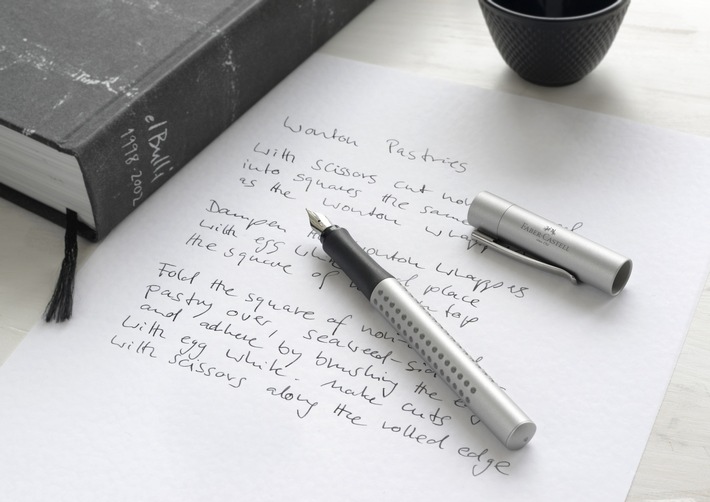 elBulli
1998-2002
Wonton Pastries
With scissors cut
into squares the same
as the wonton
Dampen the wonton wrappers
with egg place
the square of on top
Fold the square of
pastry over, seaweed-
and adhere by brushing the
with egg white. Make cuts
with scissors along the rolled edge
FABER-CASTELL